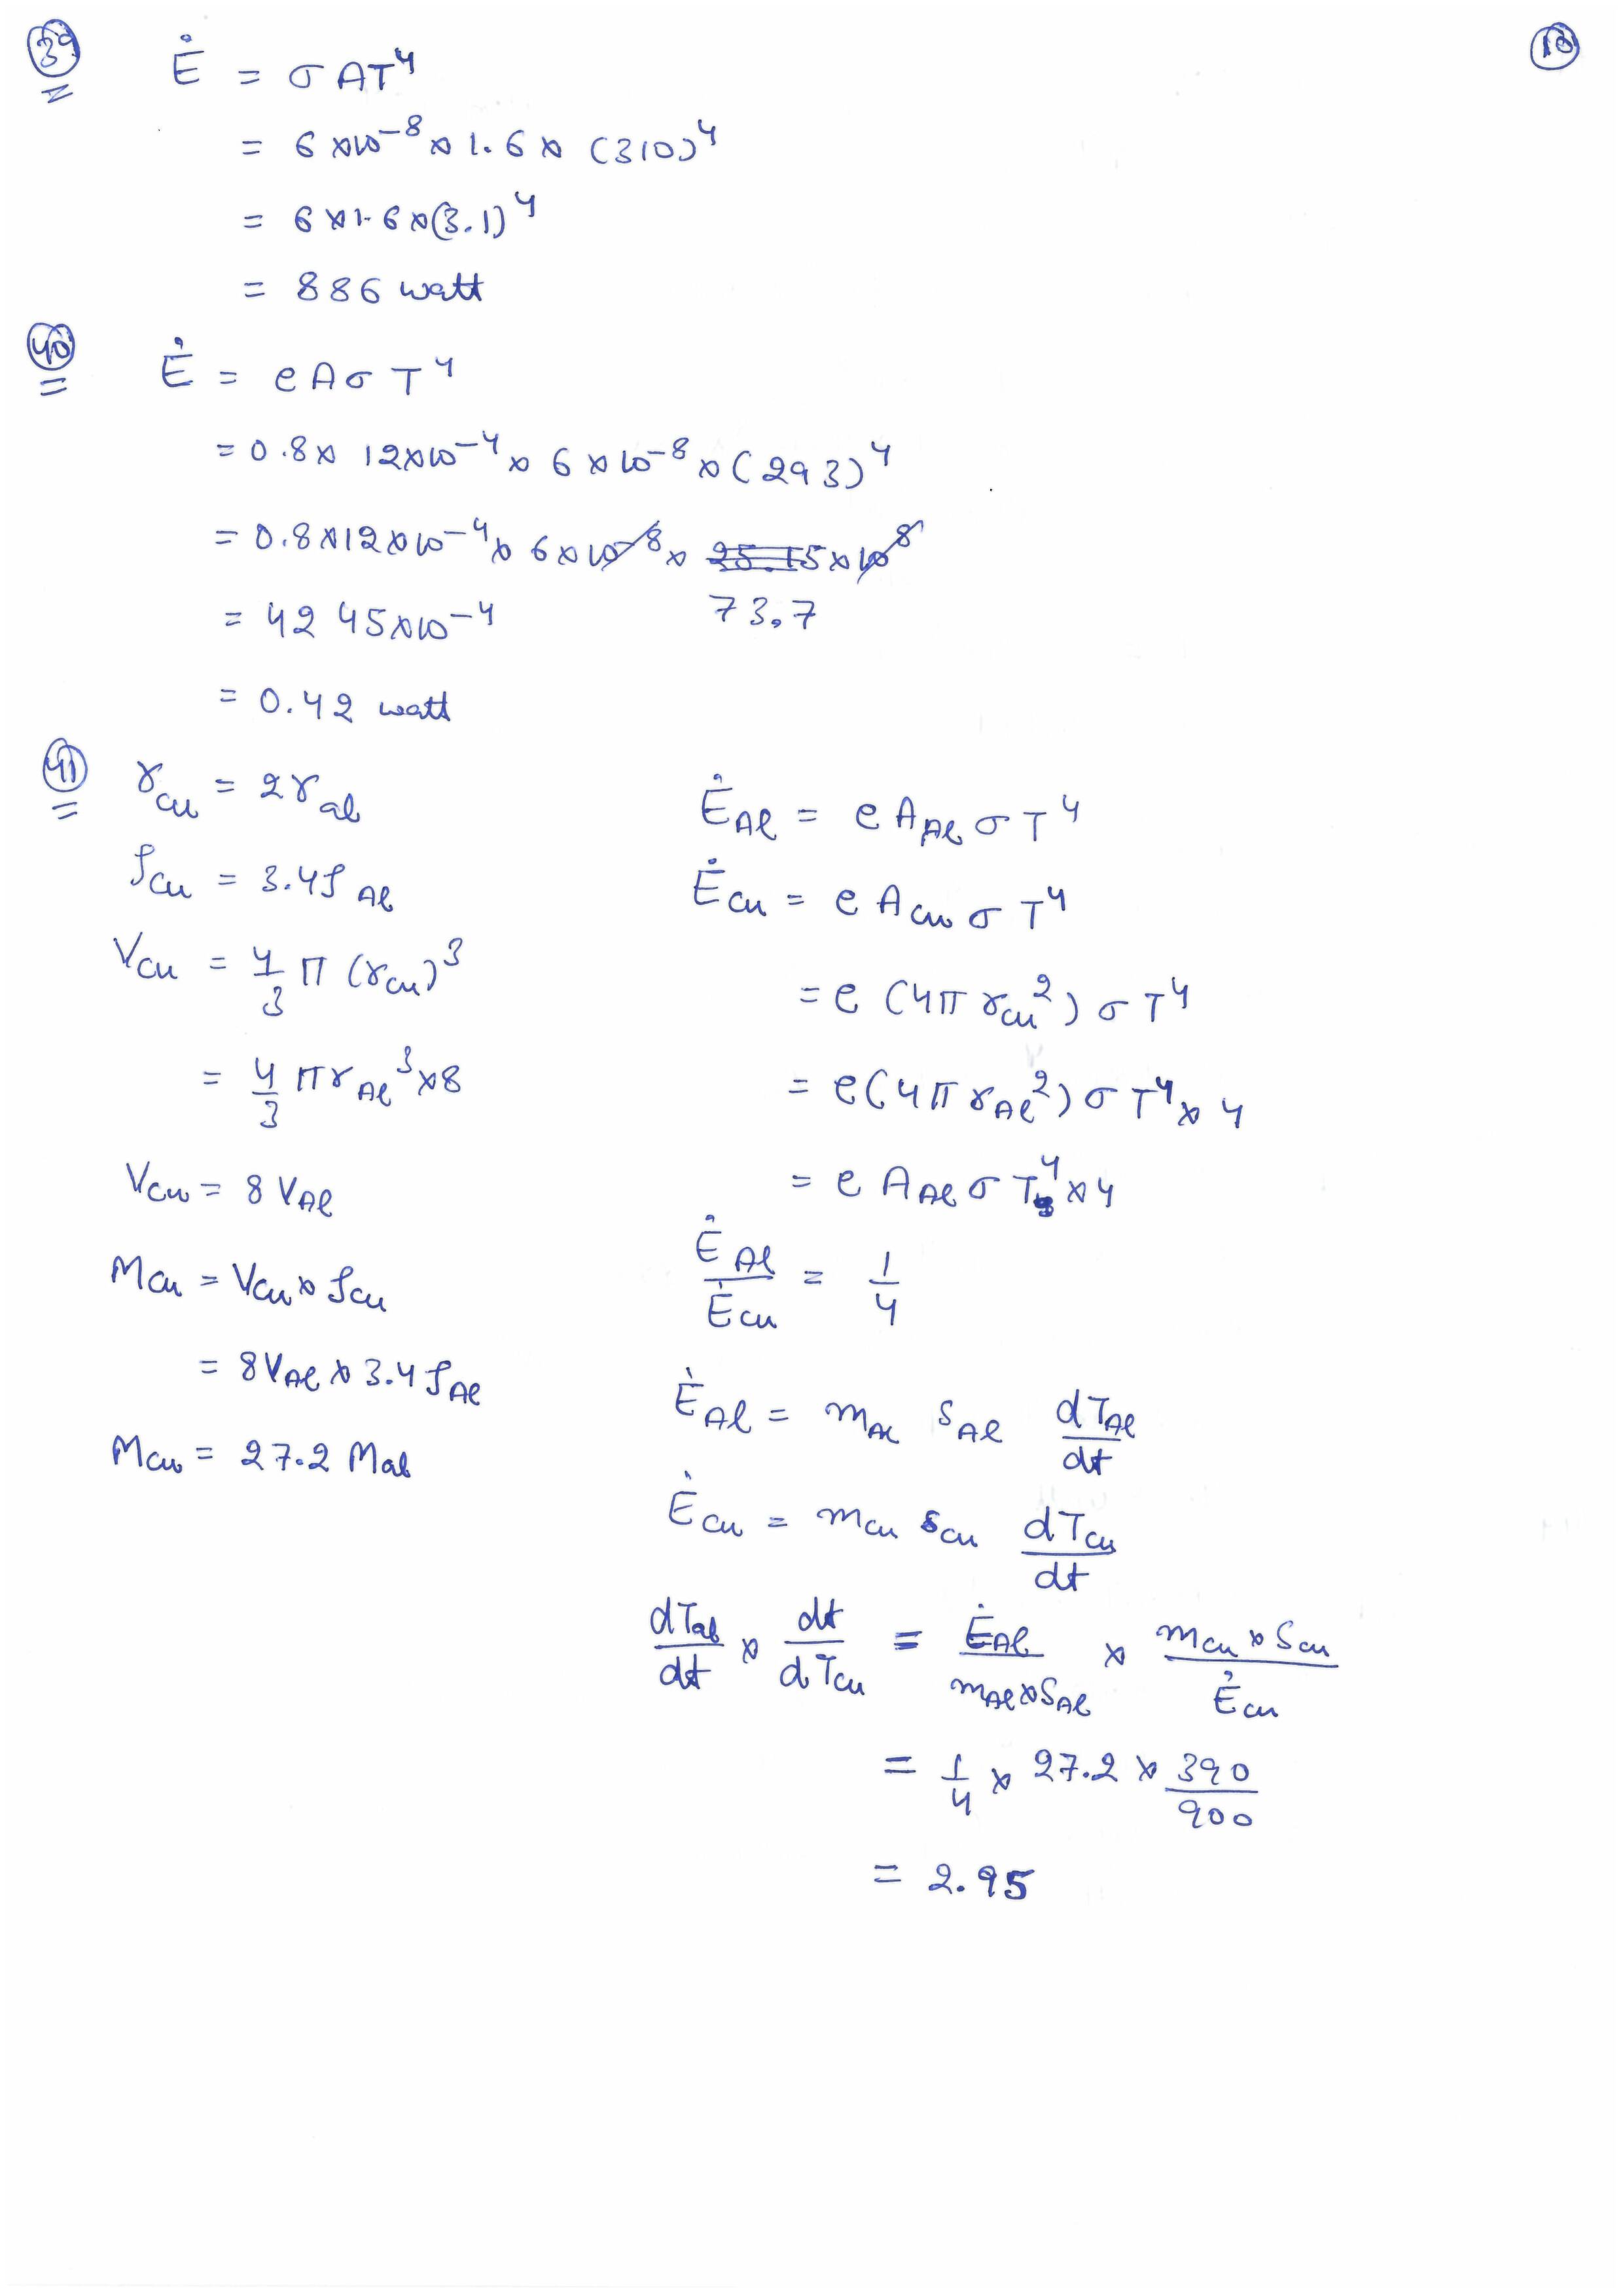 39
18
Ė = σAT⁴
= 6×10⁻⁸ × 1.6 × (310)⁴
= 6×1.6×(3.1)⁴
= 886 watt
40
Ė = eAσT⁴
= 0.8 × 12×10⁻⁴ × 6×10⁻⁸ × (293)⁴
= 0.8×12×10⁻⁴ × 6×10⁻⁸ × 25.15×10⁸
73.7
= 4245×10⁻⁴
= 0.42 watt
41
r_cu = 2r_al
ρ_cu = 3.4ρ_Al
V_cu = 4/3 π (r_cu)³
= 4/3 πr_Al³×8
V_cu = 8 V_Al
M_cu = V_cu × ρ_cu
= 8V_Al × 3.4 ρ_Al
M_cu = 27.2 M_al
Ė_Al = e A_Al σ T⁴
Ė_cu = e A_cu σ T⁴
= e (4π r_cu²) σ T⁴
= e(4π r_Al²) σ T⁴ × 4
= e A_Al σ T⁴ × 4
Ė_Al/Ė_cu = 1/4
Ė_Al = m_Al s_Al dT_Al/dt
Ė_cu = m_cu s_cu dT_cu/dt
dT_al/dt × dt/dT_cu = Ė_Al/m_Al×S_Al × m_cu × S_cu/Ė_cu
= 1/4 × 27.2 × 390/900
= 2.95